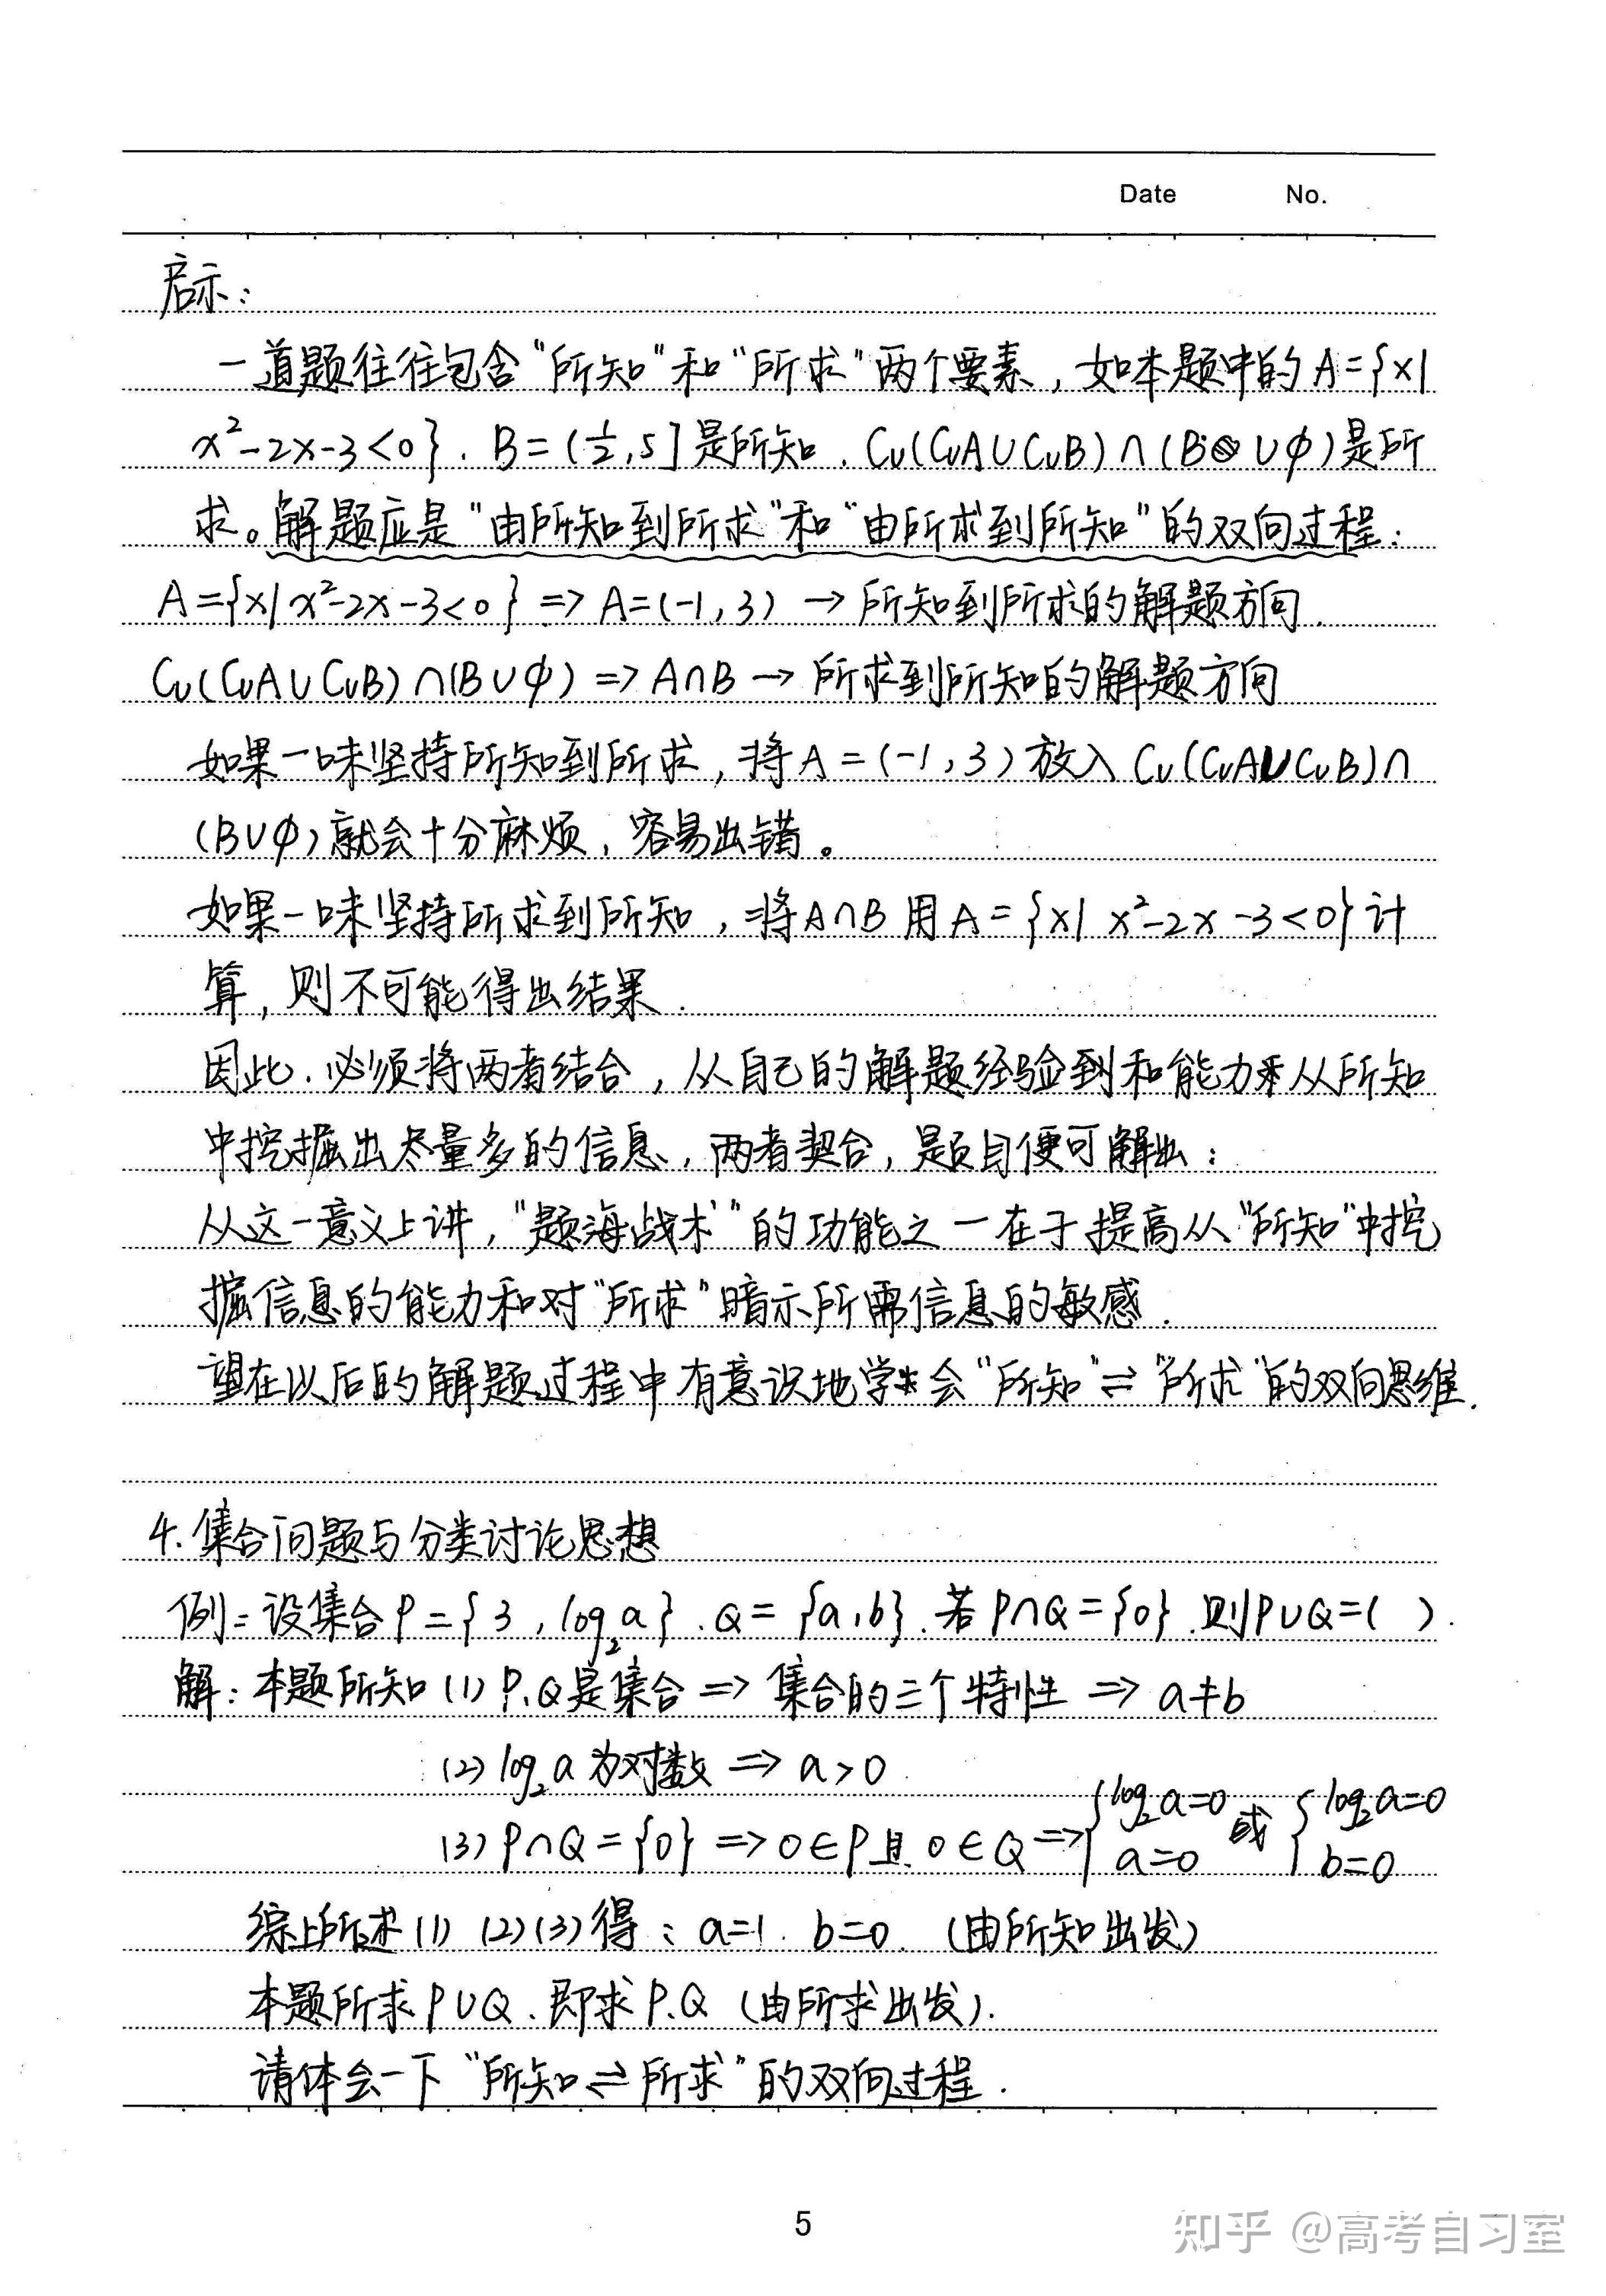 Date No.
启示：
一道题往往包含“所知”和“所求”两个要素，如本题中的A={x|
x²-2x-3<0}. B=(½,5]是所知. C∪(C∪A∪C∪B)∩(B∪φ)是所
求。解题应是“由所知到所求”和“由所求到所知”的双向过程：
A={x|x²-2x-3<0} => A=(-1,3) → 所知到所求的解题方向.
C∪(C∪A∪C∪B)∩(B∪φ) => A∩B → 所求到所知的解题方向
如果一味坚持所知到所求，将A=(-1,3)放入C∪(C∪A∪C∪B)∩
(B∪φ)就会十分麻烦，容易出错。
如果一味坚持所求到所知，将A∩B用A={x| x²-2x-3<0}计
算，则不可能得出结果.
因此.必须将两者结合，从自己的解题经验到和能力来从所知
中挖掘出尽量多的信息，两者契合，题目便可解出：
从这一意义上讲，“题海战术”的功能之一在于提高从“所知”中挖
掘信息的能力和对“所求”暗示所需信息的敏感.
望在以后的解题过程中有意识地学会“所知”⇌“所求”的双向思维.
4.集合问题与分类讨论思想
例：设集合P={3,log₂a}.Q={a,b}.若P∩Q={0}.则P∪Q=( ).
解：本题所知(1)P.Q是集合=>集合的三个特性=>a≠b
(2)log₂a为对数=>a>0.
(3)P∩Q={0}=>0∈P且0∈Q=>{log₂a=0 a=0 或 {log₂a=0 b=0
综上所述(1)(2)(3)得：a=1. b=0.（由所知出发）
本题所求P∪Q.即求P.Q（由所求出发）.
请体会一下“所知⇌所求”的双向过程.
5
知乎 @高考自习室